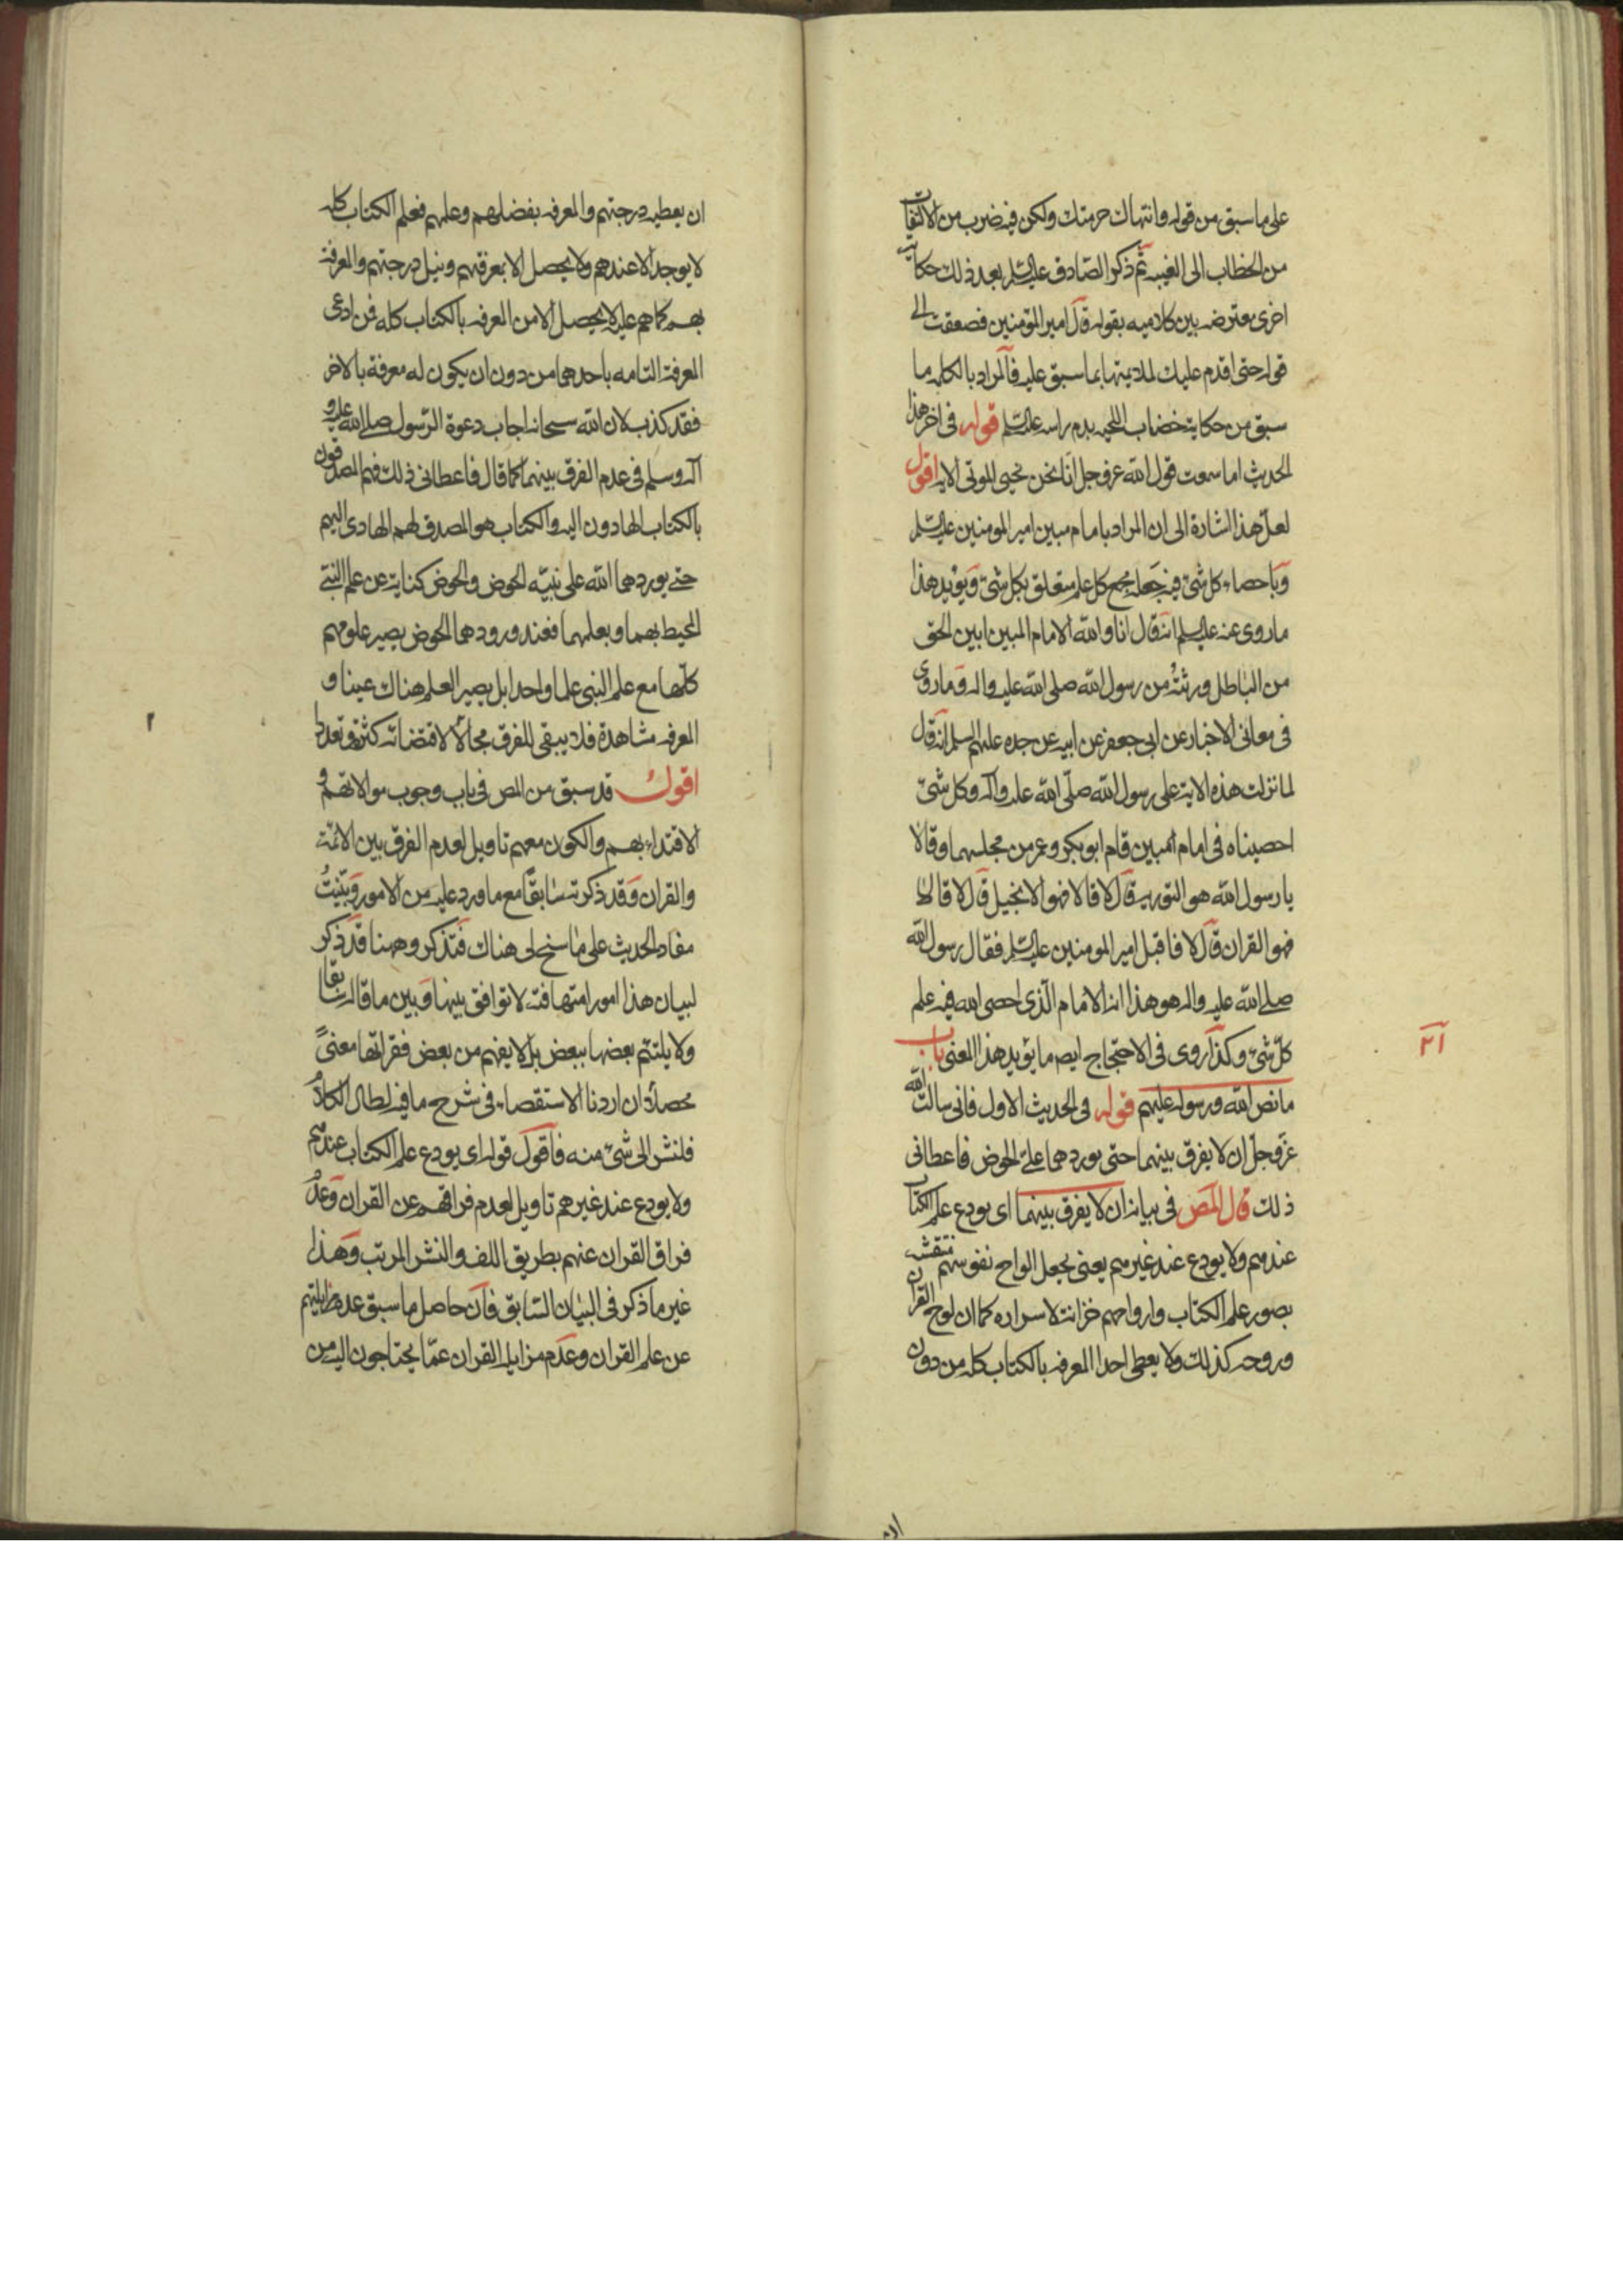 على ما سبق من قوله وانتهاك حرمتك ولكن فيه ضرب من الالتفات
من الخطاب الى الغيبه ثم ذكر الصادق عليه السلم بعد ذلك حكاية
اخرى معترضه بين كلاميه بقوله قال امير المؤمنين فصعقت الى
قوله حتى اقدم عليك بما سبق عليه فالمراد بالكلام ما
سبق من حكاية خضاب اللحيه بدم راسه عليه السلم قوله فى اخر هذا
الحديث اما سمعت قول الله عز وجل انا نحن نحيى الموتى الايه اقول
لعل هذا اشارة الى ان المراد بامام مبين امير المومنين عليه السلم
وباحصاء كل شئ فيه جعله مجمع كل علم متعلق بكل شئ ويؤيد هذا
ما روى عنه عليه السلم انه قال انا والله الامام المبين ابين الحق
من الباطل ورثته من رسول الله صلى الله عليه واله وما روى
فى معانى الاخبار عن ابى جعفر عن ابيه عن جده عليهم السلم انه قال
لما نزلت هذه الاية على رسول الله صلى الله عليه واله وكل شئ
احصيناه فى امام مبين قام ابو بكر وعمر من مجلسهما وقالا
يا رسول الله هو التورية قال لا قالا فهو الانجيل قال لا قالا
فهو القران قال لا فاقبل امير المومنين عليه السلم فقال رسول الله
صلى الله عليه واله هو هذا انه الامام الذى احصى الله فيه علم
كل شئ وكذا روى فى الاحتجاج ايضا ما يؤيد هذا المعنى باب
ما نص الله ورسوله عليهم قوله فى الحديث الاول فانى سالت الله
عز وجل ان لا يفرق بينهما حتى يوردهما على الحوض فاعطانى
ذلك قال المص فى بيانه ان لا يفرق بينهما اى يودع علم الكتاب
عندهم ولا يودع عند غيرهم يعنى يجعل الواح نفوسهم منتقشه
بصور علم الكتاب وارواحهم خزانة لاسراره كما ان لوح القران
وروحه كذلك ولا يعطى احدا المعرفه بالكتاب كله من دون
ان
ان يعطيه درجتهم والمعرفه بفضلهم وعلمهم فعلم الكتاب كله
لا يوجد الا عندهم ولا يحصل الا بمعرفتهم ونيل درجتهم والمعرفة
بهم كما هم عليه لا يحصل الا من المعرفه بالكتاب كله فمن ادعى
المعرفة التامه باحدهما من دون ان يكون له معرفة بالاخر
فقد كذب لان الله سبحانه اجاب دعوة الرسول صلى الله عليه و
اله وسلم فى عدم الفرق بينهما كما قال فاعطانى ذلك فهم المصدقون
بالكتاب الهادون اليه والكتاب هو المصدق لهم الهادى اليهم
حتى يوردهما الله على نبيه الحوض والحوض كناية عن علم النبى
المحيط بهما وبعلمهما فعند ورودهما الحوض يصير علومهم
كلها مع علم النبى علما واحدا بل يصير العلم هناك عينا و
المعرفه مشاهدة فلا يبقى للفرق مجال لاقتضائه كثرة وتعددا
اقول قد سبق من المص فى باب وجوب موالاتهم و
الاقتداء بهم والكون معهم تاويل لعدم الفرق بين الائمة
والقران وقد ذكرته سابقا مع ما ورد عليه من الامور وبينت
مفاد الحديث على ما سنح لى هناك فتذكر وههنا قد ذكر
لبيان هذا امورا متهافتة لا توافق بينها وبين ما قاله سابقا
ولا يلتئم بعضها ببعض بل لا يفهم من بعض فقراتها معنى
محصلا ان اردنا الاستقصاء فى شرح ما فيه لطال الكلام
فلنشر الى شئ منه فاقول قوله اى يودع علم الكتاب عندهم
ولا يودع عند غيرهم تاويل لعدم فراقهم عن القران وعدم
فراق القران عنهم بطريق اللف والنشر المرتب وهذا
غير ما ذكر فى البيان السابق فان حاصل ما سبق عدم مزايلتهم
عن علم القران وعدم مزايله القران عما يحتاجون اليه من